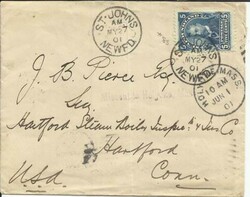 ST. JOHN'S
AM
MY 27
01
NEWF'D.
5 5
ST. JOHN'S
AM
MY 27
01
NEWF'D.
MASS
10 AM
JUN 1
01
J. B. Pierce Esq.
Hartford Steam Boiler Inspec. & Ins Co
Hartford
Conn.
U.S.A.